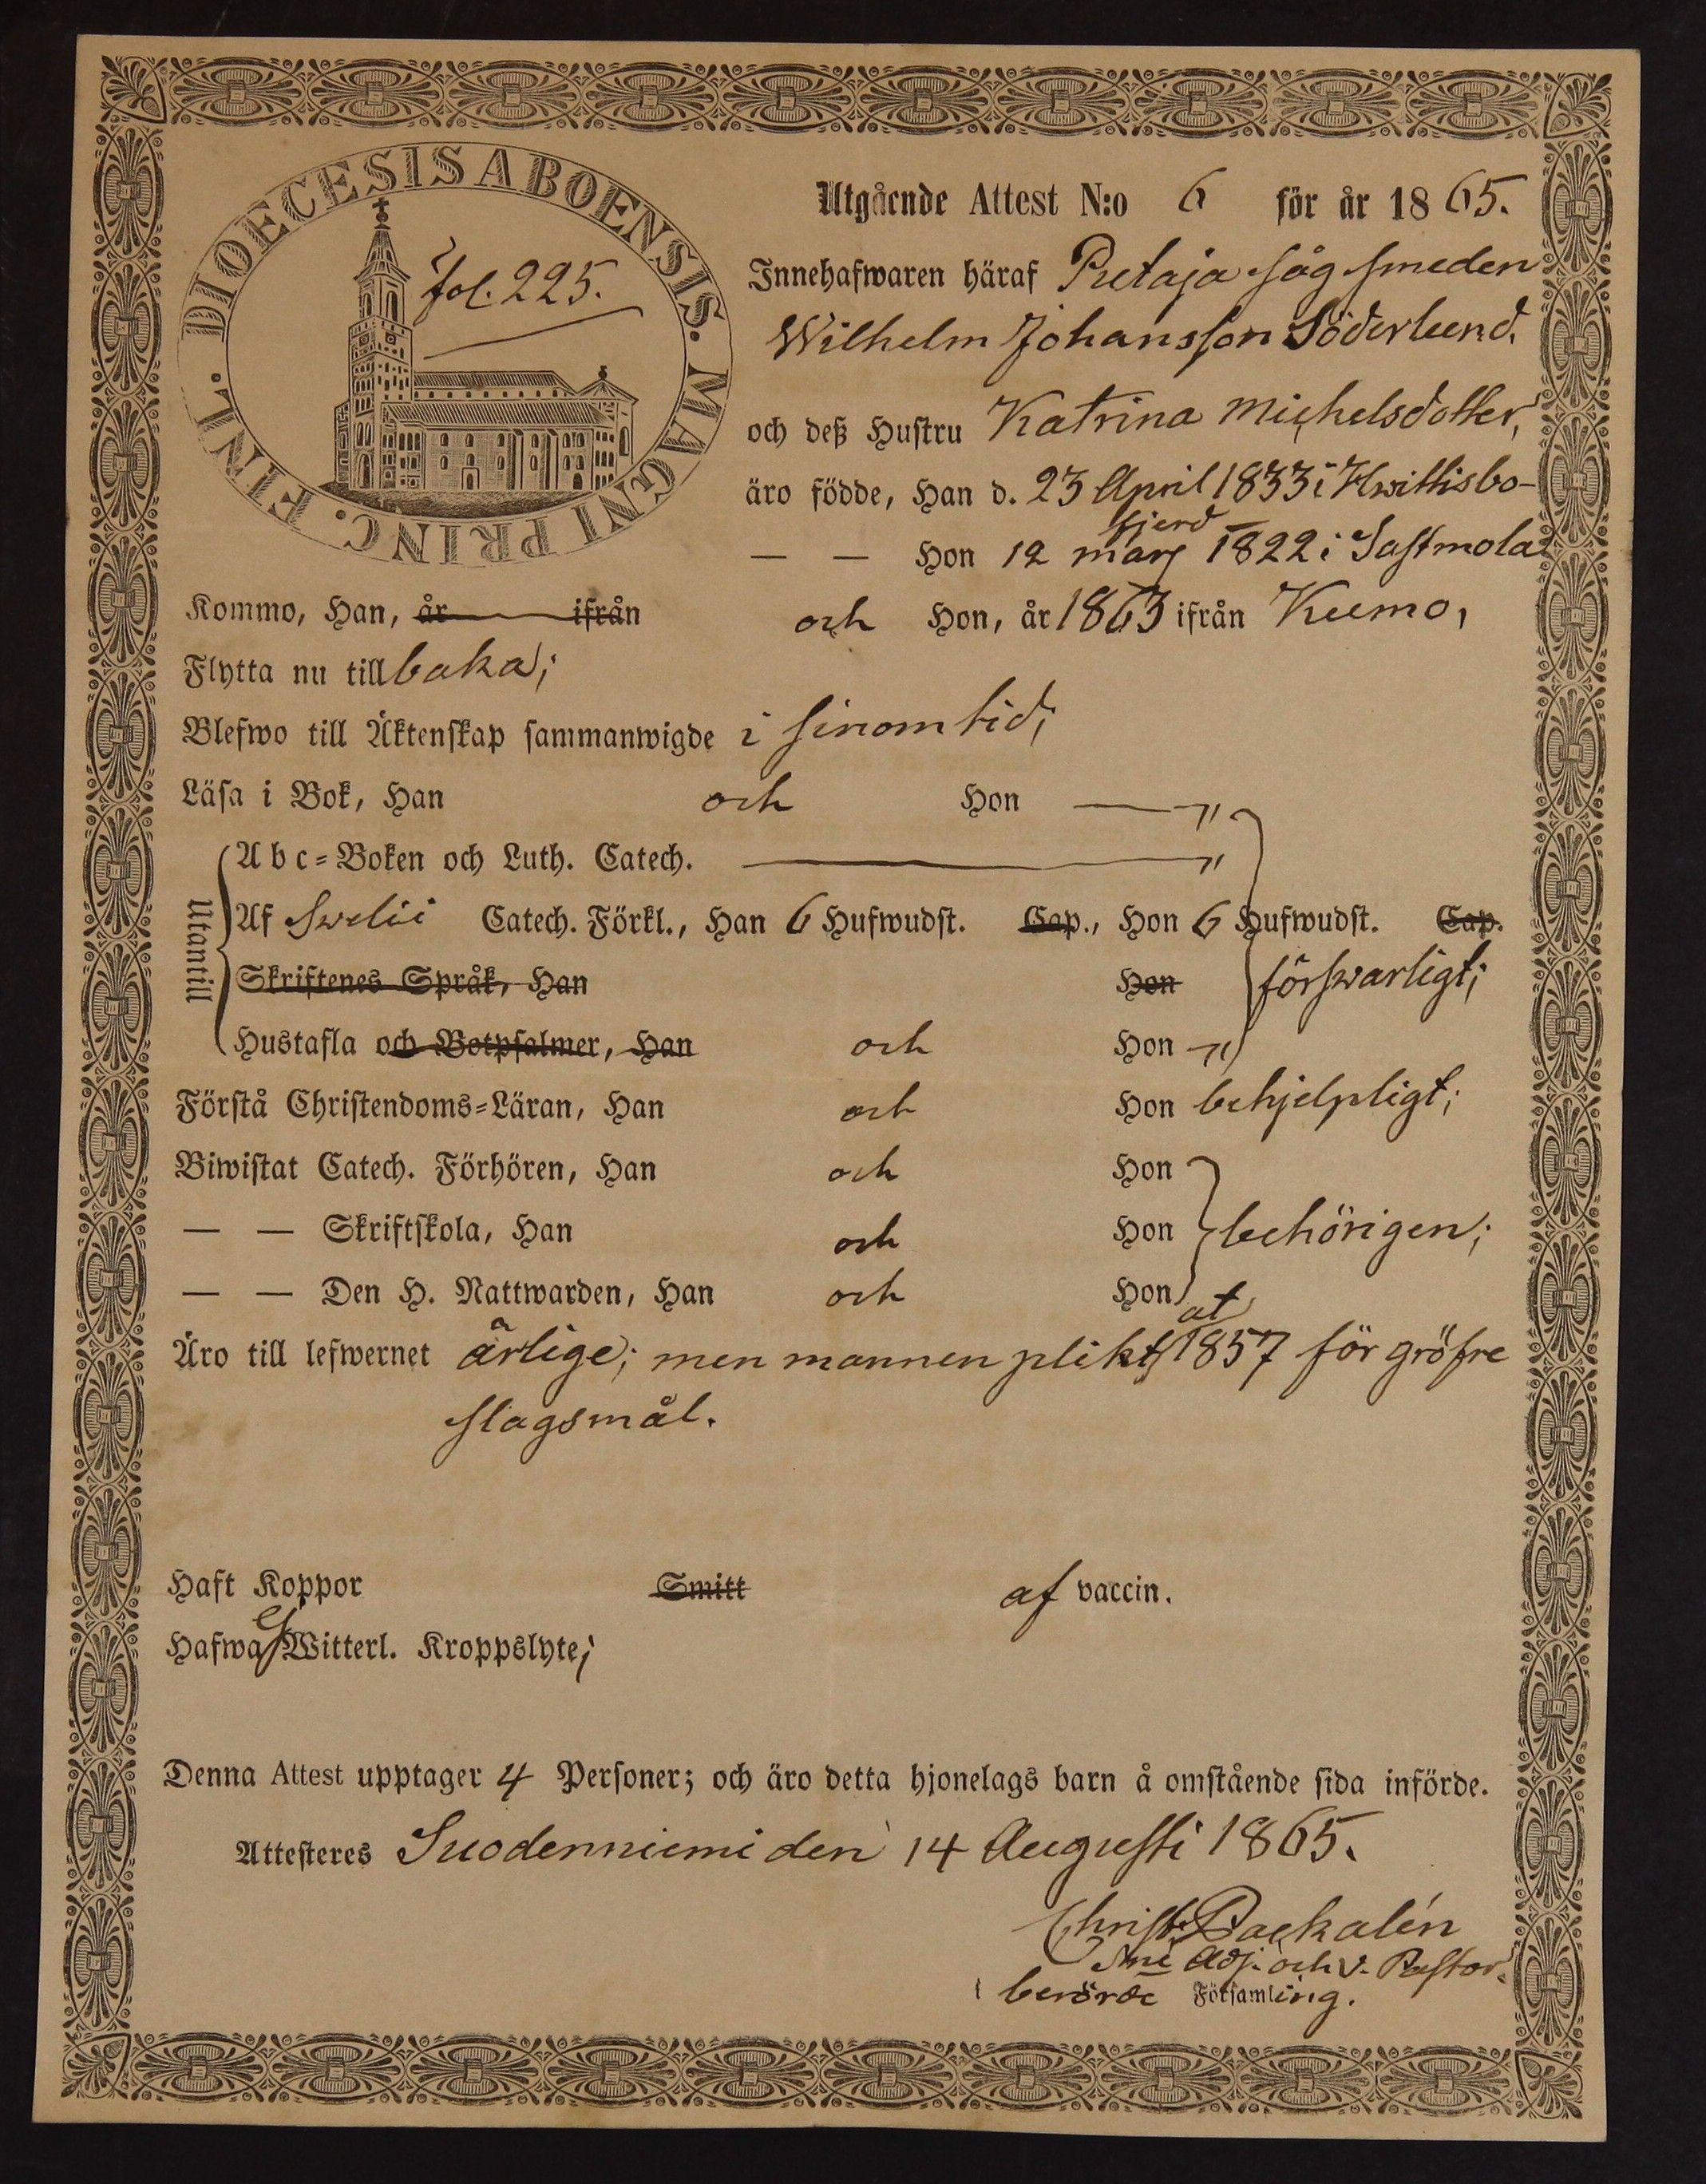 DIOECESIS ABOENSIS. MAGNI PRINC. FINL.
fol. 225.
Utgående Attest N:o 6 för år 1865.
Innehafwaren häraf Putaja såg smeden
Wilhelm Johansson Söderlund.
och deß Hustru Katrina Michelsdotter,
äro födde, Han d. 23 April 1833 i Hwittisbo-
fjerd
— — Hon 12 mars 1822 i Sastmola
Kommo, Han, år ifrån och Hon, år 1863 ifrån Kumo,
Flytta nu tillbaka;
Blefwo till Äktenskap sammanwigde i sinom tid;
Läsa i Bok, Han och Hon — "
Utantill
Abc=Boken och Luth. Catech. — "
Af Swelii Catech. Förkl., Han 6 Hufwudst. Cap., Hon 6 Hufwudst. Cap.
Skriftenes Språk, Han Hon försvarligt;
Hustafla och Botpsalmer, Han och Hon — "
Förstå Christendoms=Läran, Han och Hon behjelpligt;
Biwistat Catech. Förhören, Han och Hon
— — Skriftskola, Han och Hon behörigen;
— — Den H. Nattwarden, Han och Hon
Äro till lefwernet ärlige; men mannen plikt at 1857 för gröfre
slagsmål.
Haft Koppor Smitt af vaccin.
Hafwa ej Witterl. Kroppslyte;
Denna Attest upptager 4 Personer; och äro detta hjonelags barn å omstående sida införde.
Attesteres Suodenniemi den 14 Augusti 1865.
Christ. Packalén
Adj. och v. Pastor.
i berörde Församling.